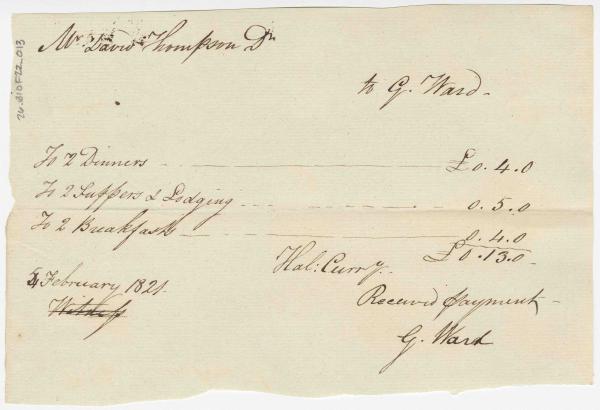 Mr. David Thompson Dr
to G. Ward
To 2 Dinners £0.4.0
To 2 Suppers & Lodging 0.5.0
To 2 Breakfasts 0.4.0
£0.13.0
Hal: Curry.
February 1821
Received payment
G. Ward